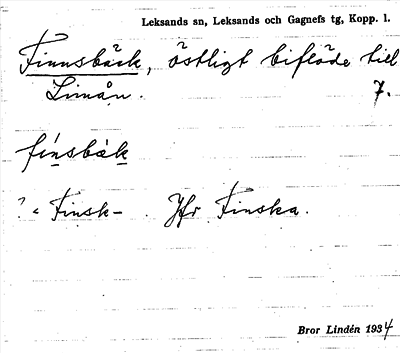 Leksands sn, Leksands och Gagnefs tg, Kopp. l.
Finnsbäck, östligt biflöde till
Limån. 7.
fínsbàk
? < Finsk- . Jfr Finska.
Bror Lindén 1934